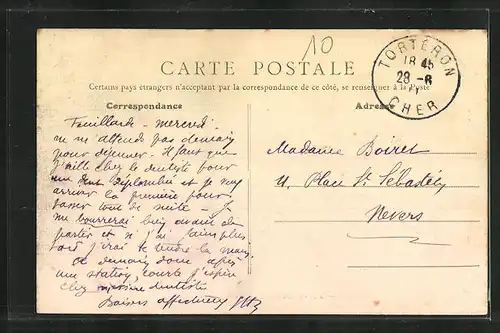 10
CARTE POSTALE
Certains pays étrangers n'acceptant pas la correspondance de ce côté, se renseigner à la Poste
Correspondance
Adresse
TORTERON
18 45
28 - 6
CHER
Feuillarde - mercredi
ne m'attends pas demain
pour déjeuner. Il faut que
j'aille chez le dentiste pour
une dent et je
arriver la première pour
passer tout de suite - Je
me bourrerai bien avant de
partir et si j'ai faim plus
tard j'irai te vendre la main
a demain donc après
une station, courte j'espère
chez dentiste
Baisers affectueux
Madame Boiret
11, Place St Sébastien
Nevers